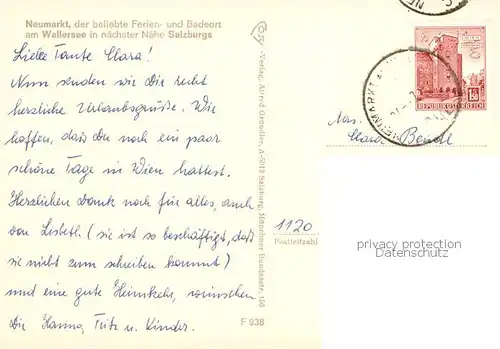 Neumarkt, der beliebte Ferien- und Badeort
am Wallersee in nächster Nähe Salzburgs
Liebe Tante Clara!
Nun senden wir Dir recht
herzliche Urlaubsgrüße. Wir
hoffen, daß Du noch ein paar
schöne Tage in Wien hattest.
Herzlichen Dank noch für alles, auch
von Lisbeth (sie ist so beschäftigt, daß
sie nicht zum schreiben kommt)
und eine gute Heimkehr, wünschen
Dir Hanna, Fritz u. Kinder.
F 938
Verlag, Alfred Grundler, A-5013 Salzburg, Münchner Bundesstr. 156
REPUBLIK ÖSTERREICH
NEUMARKT A
Mrs.
Clara Bendl
1120
Postleitzahl
privacy protection
Datenschutz